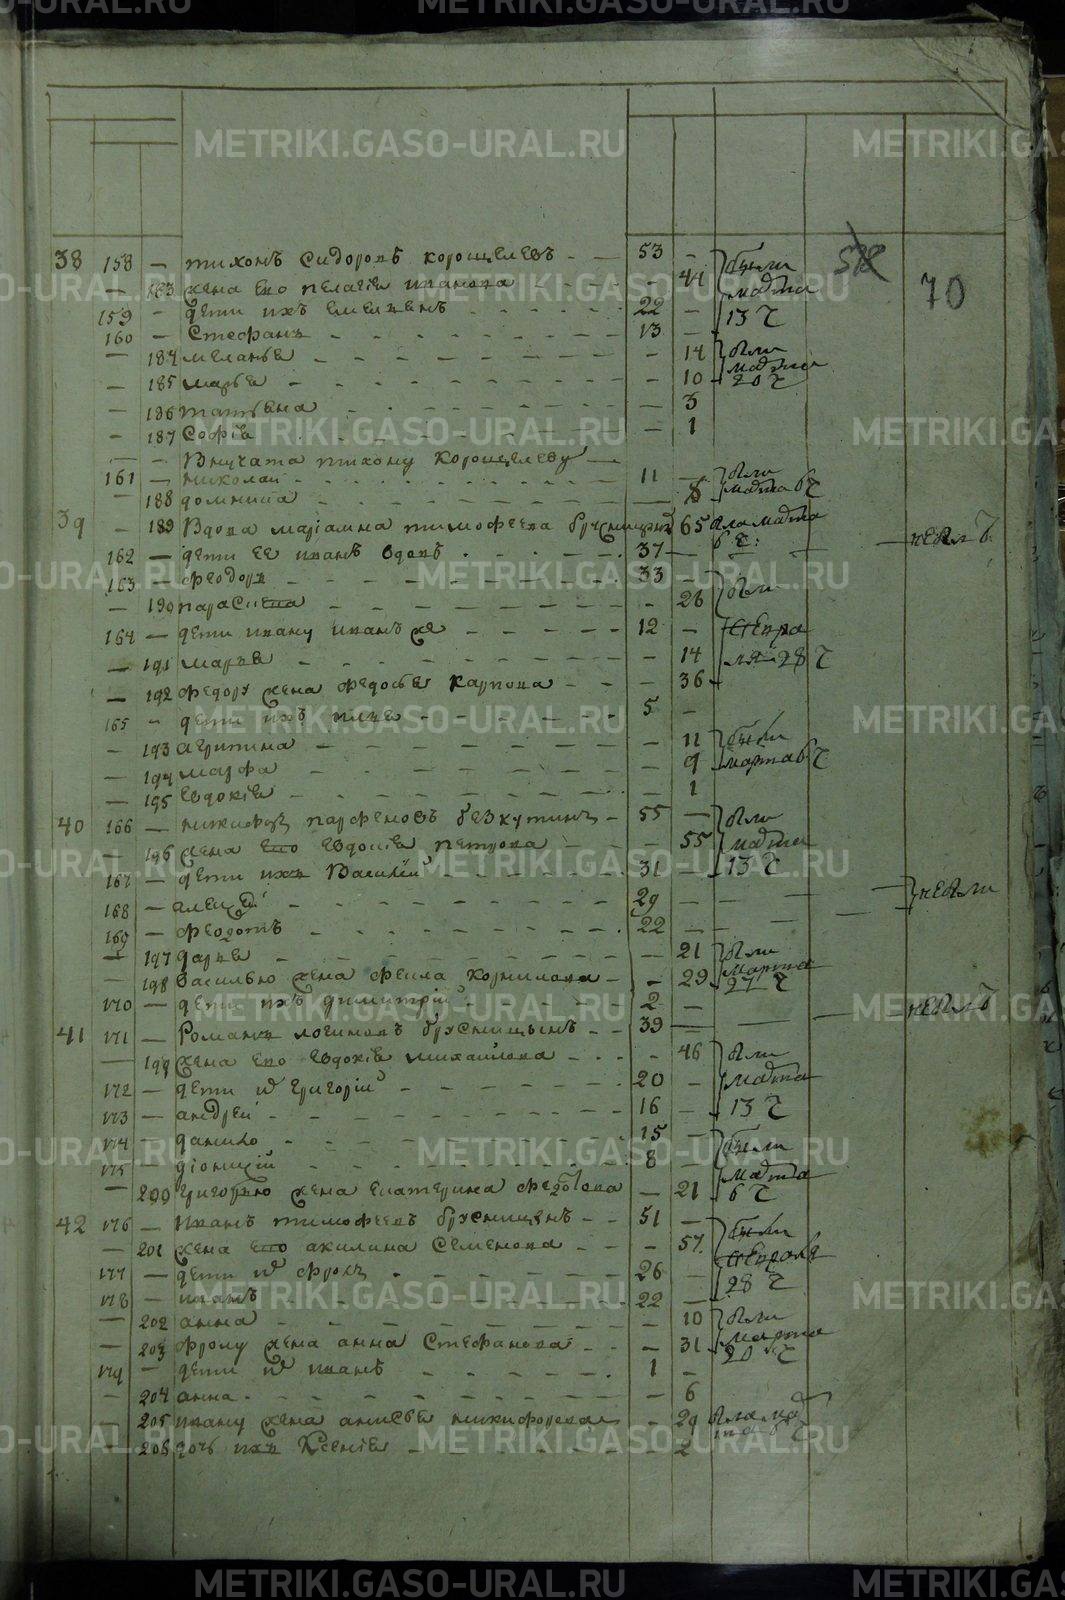 METRIKI.GASO-URAL.RU
58 70
38 158 — тихонъ Сидоровъ корощелевъ — — 53 — были
— 183 жена его пелагѣя иванова — 41 марта
159 — дети ихъ емелїанъ 22 — 13 ч
160 — Стефанъ 13 —
— 184 меланья — 14 были
— 185 марья — 10 марта 20 ч
— 186 татьяна — 3
— 187 Софїя — 1
— — Внучата тихону Корощелеву
161 — николай 11 — были
— 188 домнина — 8 марта 6 ч
39 — 189 Вдова марїамна тимофеева брусницына 65 была марта
162 — дети ее иванъ Вдовъ 37 — 6 ч: — — небылъ
163 — феодоръ 33 —
— 190 парасковья — 26 были
164 — дети ивану иванъ же 12 — февра
— 191 марья — 14 ля 28 ч
— 192 федору жена федосья карпова — 36
165 — дети ихъ илья 5 —
— 193 агрипина — 11 были
— 194 марфа — 9 марта 6 ч
— 195 евдокїя — 1
40 166 — никифоръ парфеновъ безкутинъ 55 — были
— 196 жена его евдокїя петрова — 55 марта
167 — дети ихъ Василїй 31 — 13 ч
168 — алексѣй 29 — — — небыли
169 — феодотъ 22 — —
— 197 дарья — 21 были
— 198 василью жена фекла корнилова — 29 марта 27 ч
170 — дети ихъ димитрїй 2 —
41 171 — Романъ логиновъ брусницынъ 39 — — — небылъ
— 199 жена его евдокїя михайлова — 46 были
172 — дети их григорїй 20 — марта
173 — андрей 16 — 13 ч
174 — данило 15 — были
175 — дїонисїй 8 — марта
— 200 григорью жена екатерина федотова — 21 6 ч
42 176 — иванъ тимофеевъ брусницынъ 51 — были
— 201 жена его акилина Семенова — 57 февраля
177 — дети их фролъ 26 — 28 ч
178 — иванъ 22 —
— 202 анна — 10 были
— 203 фролу жена анна Стефанова — 31 марта 20 ч
179 — дети их иванъ 1 —
— 204 анна — 6
— 205 ивану жена анисья никифорова — 29 была мар
— 206 дочь ихъ Ксенїя — 2 та 6 ч